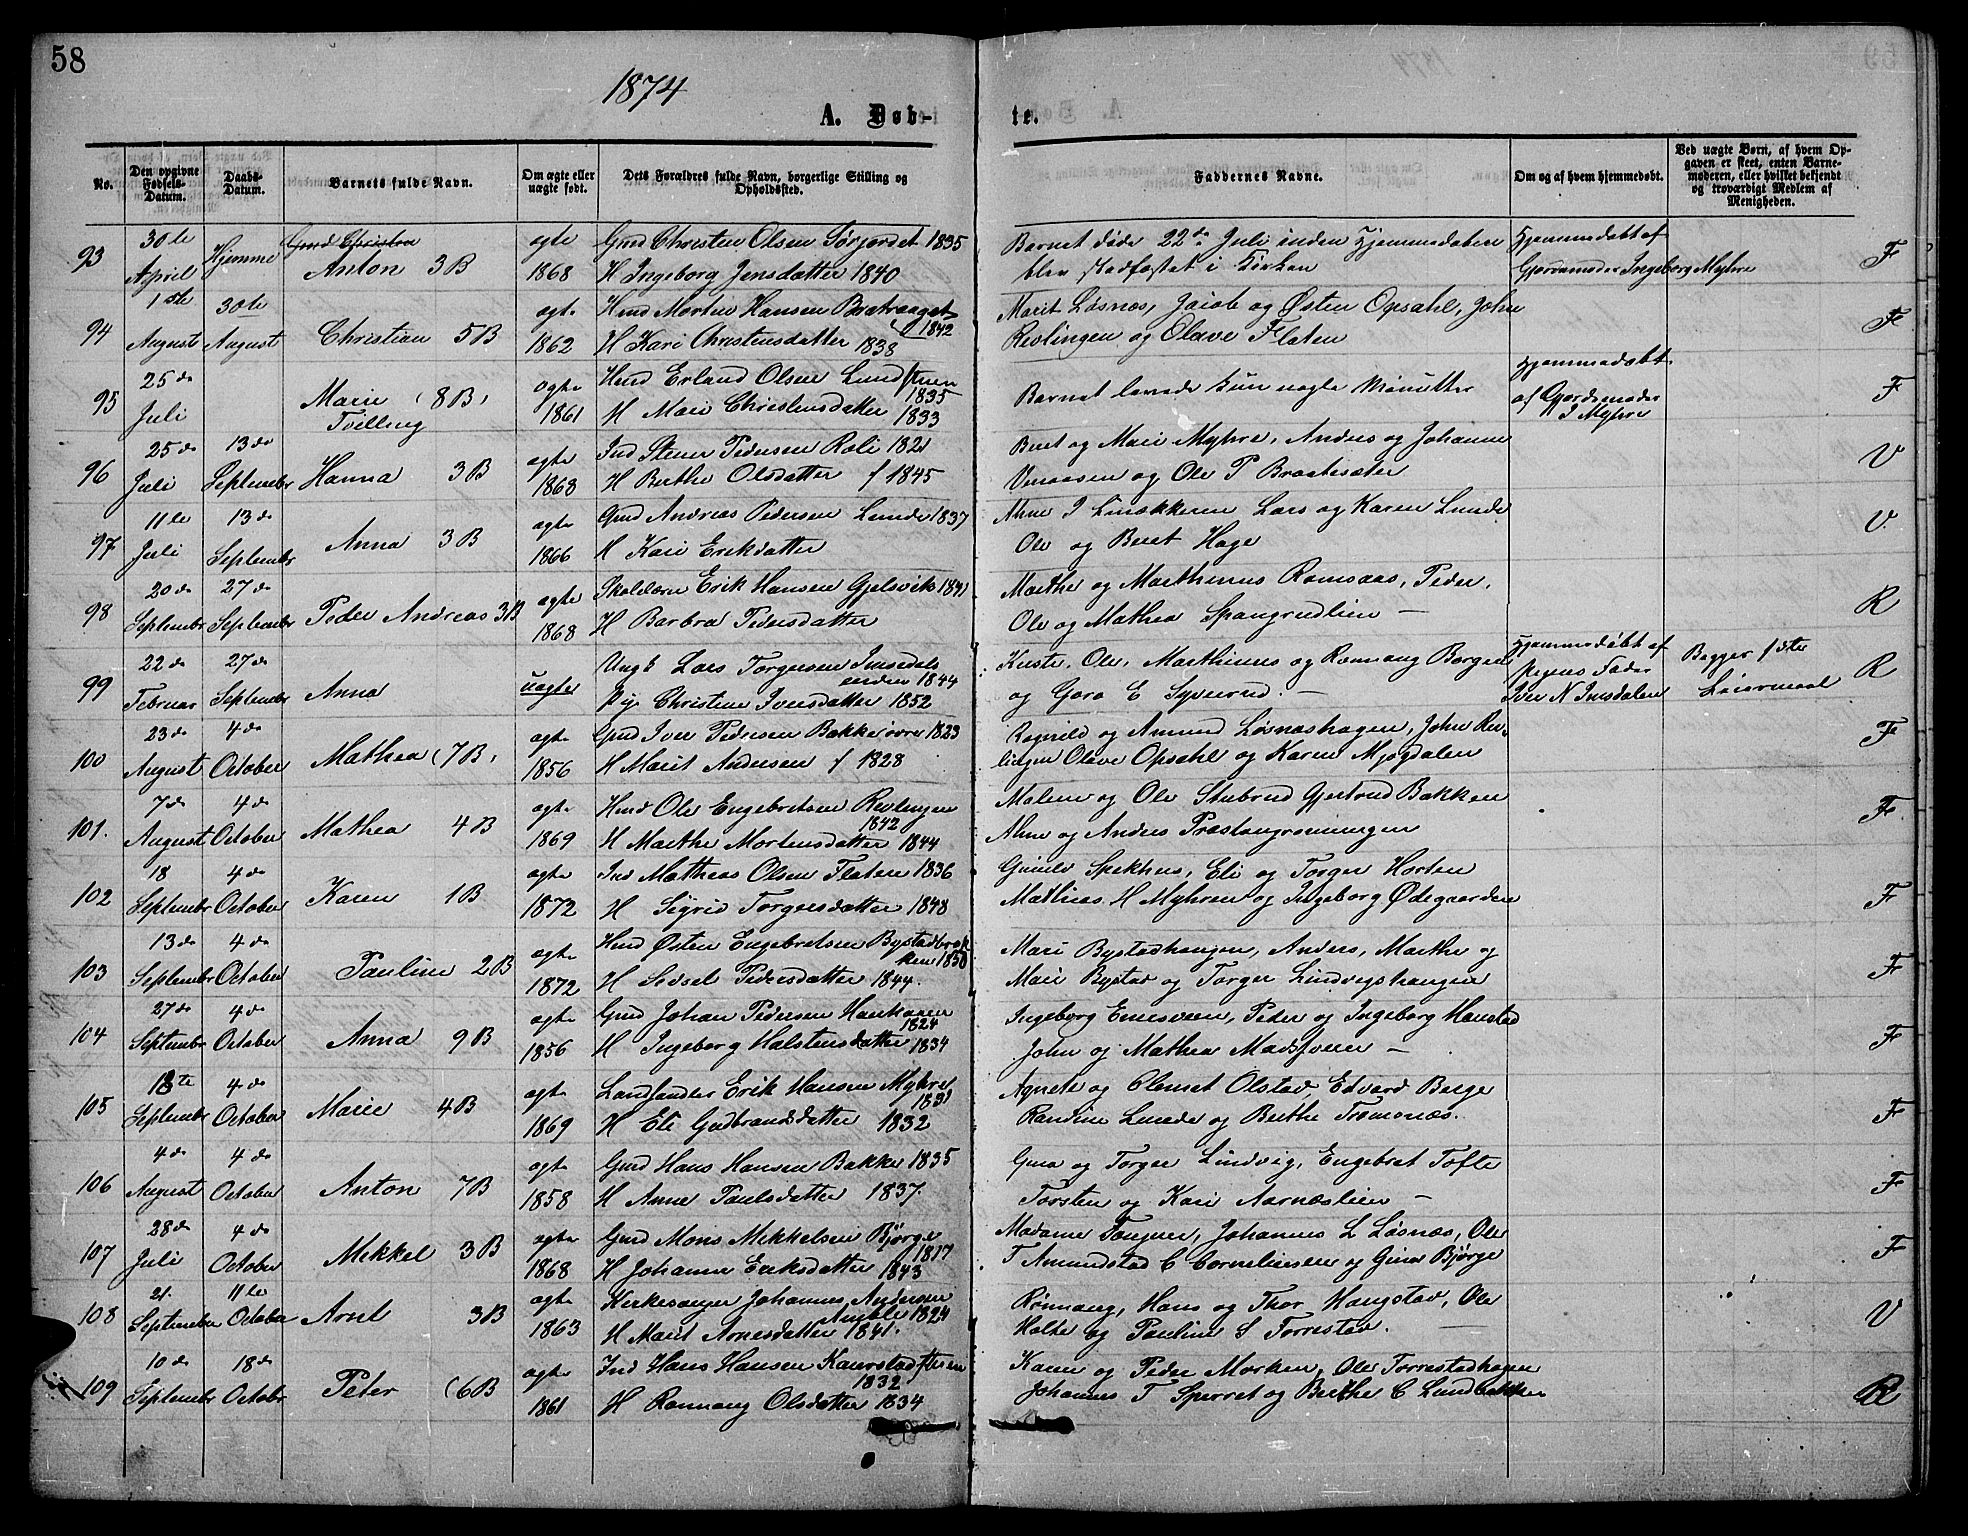 58
1874
A. Døb-
te.
No.
Den opgivne Fødsels-Datum.
Daabs-Datum.
Barnets fulde Navn.
Om ægte eller uægte født.
Dets Forældres fulde Navn, borgerlige Stilling og Opholdssted.
Faddernes Navne.
Om og af hvem hjemmedøbt.
Ved uægte Børn, af hvem Opgaven er skeet, enten Barnemoderen, eller hvilket bekjendt og troværdigt Medlem af Menigheden.
93 30te April Hjemme Anton 3B ægte 1868 Gmd Christen Olsen Sørjordet 1835
H Ingeborg Jensdatter 1840
Barnet døde 22de Juli inden Hjemmedaaben
blev stadfæstet i Kirken
Hjemmedøbt af
Gjordemoder Ingeborg Myhre F
94 1ste August 30te August Christian 5B ægte 1862 Hmd Morten Hansen 1842
H Kari Christensdatter 1838
Marit Løsnæs, Jacob og Østen Opsahl, John
Revlingen og Olave Flaten F
95 25de Juli Marie (8B) Tvilling ægte 1861 Hmd Erland Olsen 1835
H Mari Christensdatter 1833
Barnet levede kun nogle Minutter
Hjemmedøbt
af Gjordemoder
I Myhre F
96 25de Juli 13de September Hanna 3B ægte 1868 Ind Stener Pedersen Roli 1821
H Berthe Olsdatter f 1845
Beret og Mari Myhre, Andres og Johanne
og Ole P Braatesæter V
97 11te Juli 13de September Anna 3B ægte 1866 Gmd Andreas Pedersen Lunde 1837
H Kari Eriksdatter
Lars og Karen Lunde
Ole og Beret Hage V.
98 20de September 27de September Peder Andreas 3B ægte 1868 Skolelærer Erik Hansen Gjelsvik 1841
H Barbra Pedersdatter
Marthe og Marthinus Romsaas, Peder,
Ole og Mathea Spangrudlien — R
99 22de Februar 27de September Anna uægte Ungk Lars Torgersen 1844
Pige Christine Iversdatter 1852
Ole, Marthinus og Ronnaug Borgen
og Goro E Syverud. —
Hjemmedøbt af
Pigens Fader
Iver N Imsdalen
Begges 1ste
Leiermaal R
100 23de August 4de October Mathea (7B) ægte 1856 Gmd Iver Pedersen Bakke øvre 1823
H Marit Andersen f 1828
Ragnild og Amund Løsnæshagen, John Rev-
lingen Olave Opsahl og Karen Mjøgdalen F
101. 7de August 4de October Mathea 4B ægte 1869 Hmd Ole Engebretsen Revlingen 1842
H Marthe Mortensdatter 1844
Malene og Ole Stubrud Gjertrud Bakken
Ane og Andres Præstengrønningen F
102 18 September 4de October Karen 1B ægte 1872 Ind Mathias Olsen Flaten 1836
H Sigrid Torgersdatter 1848
Eli og Torger Horten
Mathias H Myhren og Ingeborg Ødegaarden F
103 13de September 4de October Pauline 2B ægte 1872 Hmd Østen Engebretsen Bystadbrækken 1838
H Sidsel Pedersdatter 1844.
Mari Bystadhaugen, Anders, Marthe og
Mari Bystad og Torger Lindvigshaugen F
104 27de September 4de October Anna 9B ægte 1856 Gmd Johan Pedersen 1824
H Ingeborg Halstensdatter 1834
Ingeborg Enesveen, Peder og Ingeborg Hanstad
John og Mathea — F
105 13te September 4de October Marie 4B ægte 1869 Landhandler Erik Hansen Myhre 1831
H Eli Gudbrandsdatter 1832
Agnete og Clemet Olstad, Edvard Berge
Randine Lunde og Berthe Tromsnæs. F
106 4de August 4de October Anton 7B ægte 1858 Gmd Hans Hansen Bakke 1835
H Anne Paulsdatter 1837.
Gura og Torger Lindvig, Engebret Tofte
Torsten og Kari Aarnæslien — F
107 28de Juli 4de October Mikkel 3B ægte 1868 Gmd Mons Mikkelsen Bjørge 1817
H Johanne Eriksdatter 1843
Madame Fougner, Johannes L Løsnæs, Ole
T Amundstad C Corneliussen og Gina Bjørge F
108 21. September 11te October Arnt 3B ægte 1863 Kirkesanger Johannes Andersen 1824
H Marit Arnesdatter 1841.
Rønnaug, Hans og Thor Haugstad, Ole
Holte og Pauline S Torrestad. V
109 10de September 18de October Peter (6B ægte 1861 Ind Hans Hansen 1832
H Rønnaug Olsdatter 1834
Karen og Peder Morken, Ole Torrestadhagen
Johannes T Sperret og Berthe C Lundbakken R